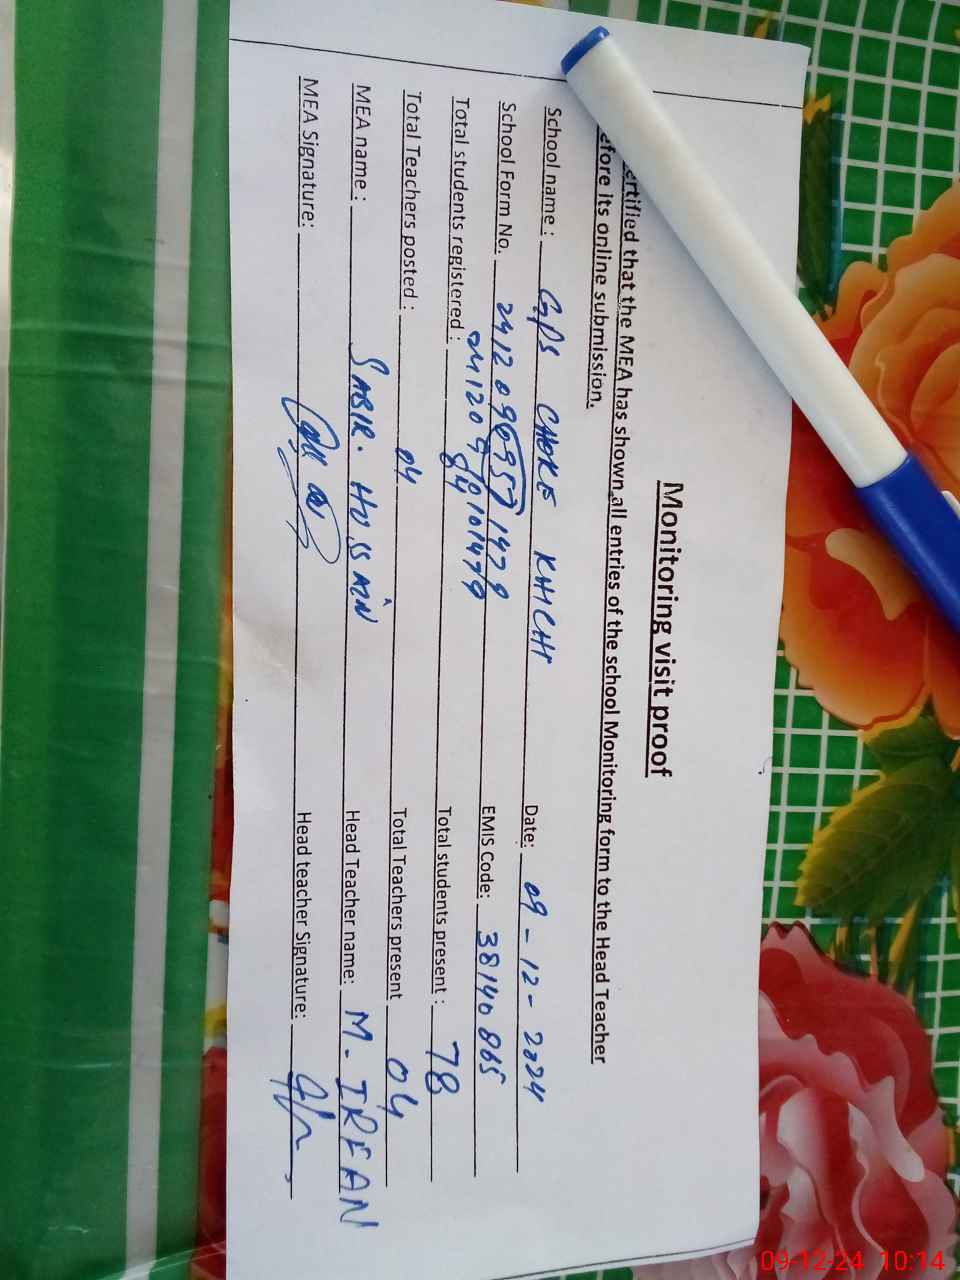 Monitoring visit proof
ertified that the MEA has shown all entries of the school Monitoring form to the Head Teacher
efore its online submission.
School name : GPS CHOKE KHICHI Date: 09-12-2024
School Form No. EMIS Code: 38140865
Total students registered : 84 Total students present : 78
Total Teachers posted : 04 Total Teachers present 04
MEA name : SABIR. HUSSAIN Head Teacher name: M. IRFAN
MEA Signature: Head teacher Signature:
09-12-24 10:14